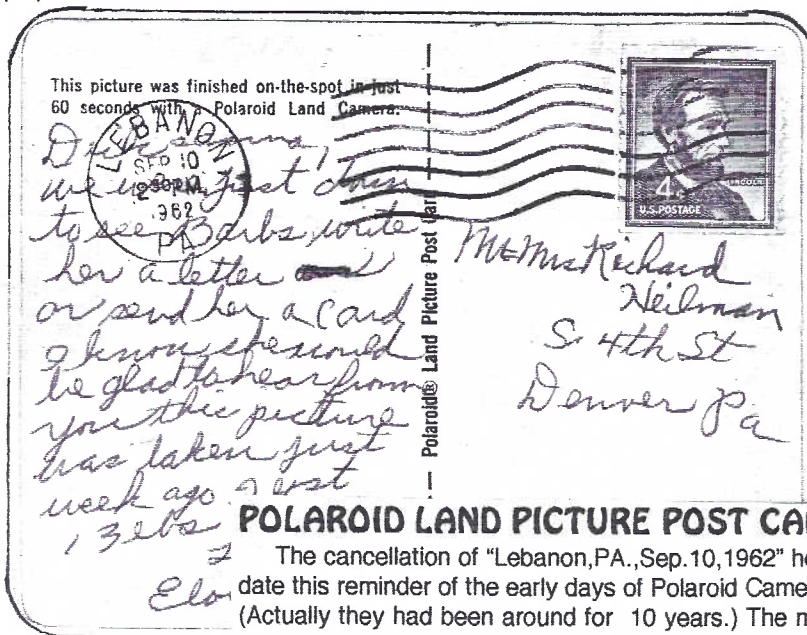 This picture was finished on-the-spot in just
60 seconds with a Polaroid Land Camera.
LEBANON
SEP 10
2 30 PM
1962
PA
we just down
to see Barbs, write
her a letter
or send her a Card
I know she would
be glad to hear from
you this picture
was taken just
week ago
Polaroid® Land Picture Post Card
4¢
LINCOLN
U.S. POSTAGE
Mr & Mrs Richard
Heilman
S. 4th St
Denver Pa
POLAROID LAND PICTURE POST CA
The cancellation of "Lebanon,PA.,Sep.10,1962" he
date this reminder of the early days of Polaroid Came
(Actually they had been around for 10 years.) The n